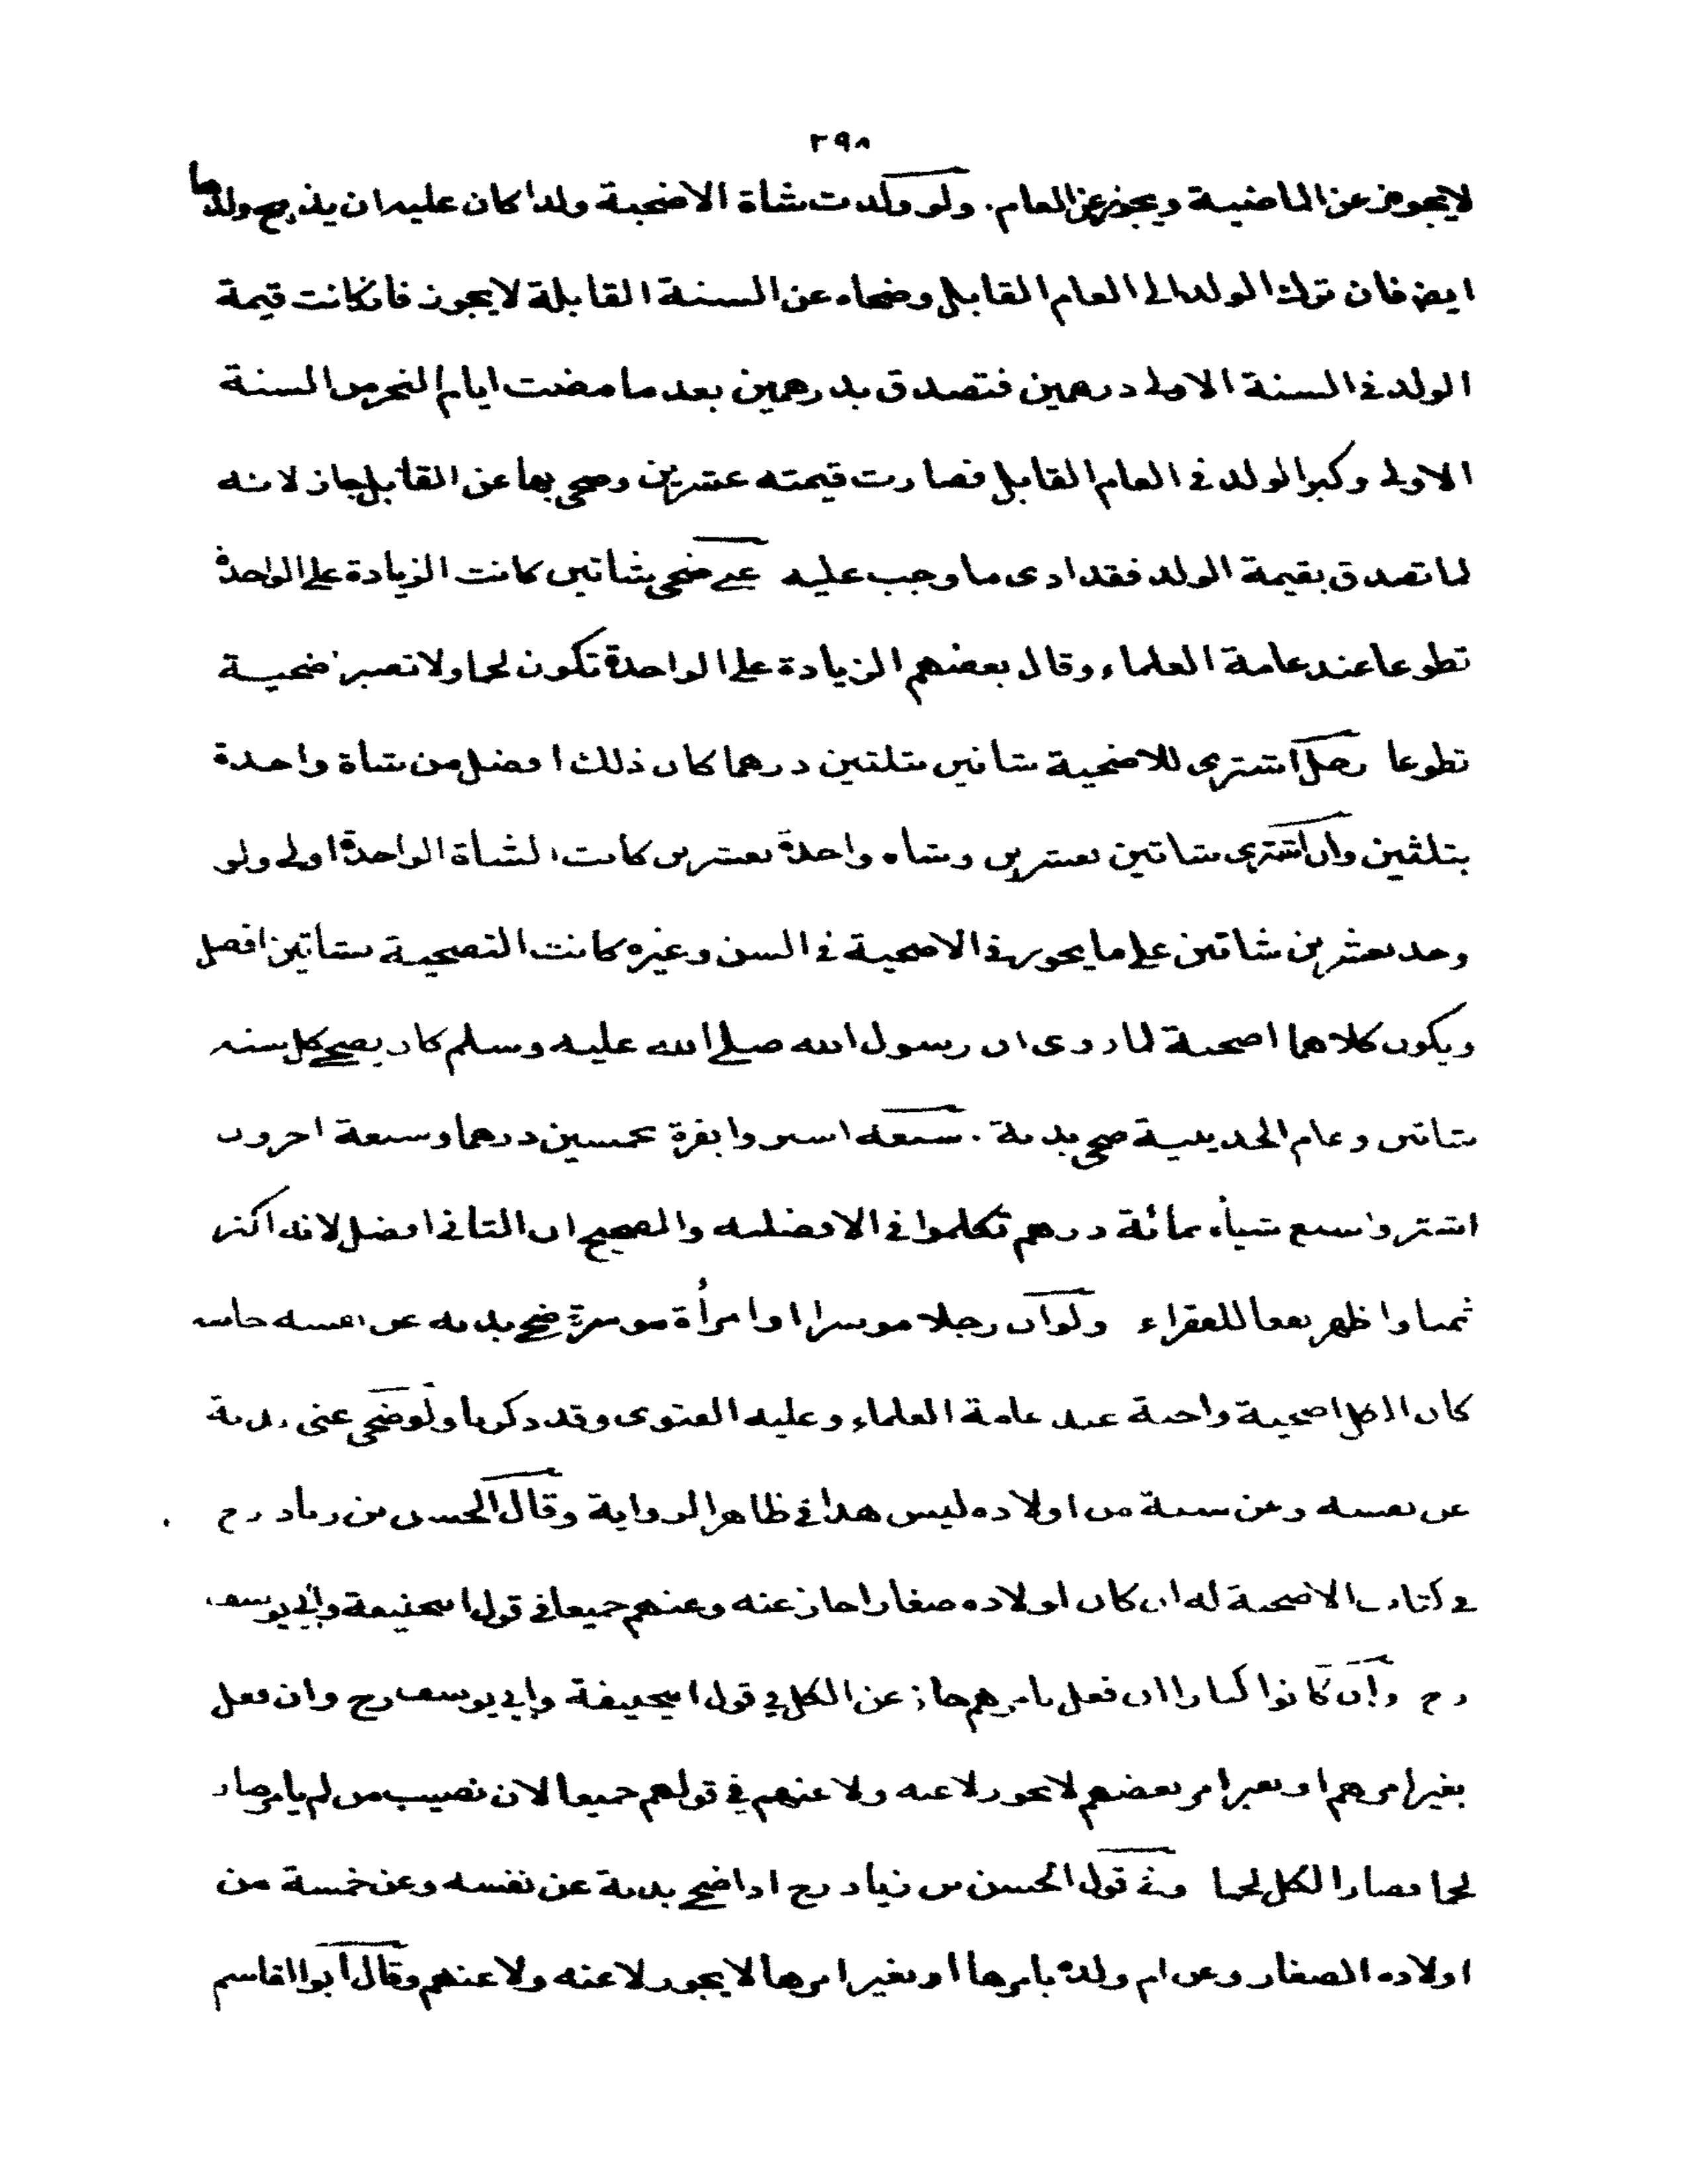 ٢٩٨
لايجوز عن الماضية ويجوز عن العام. ولو ولدت شاة الاضحية ولدا كان عليه ان يذبح ولدها
ايض فان ترك الولد الى العام القابل وضحاه عن السنة القابلة لايجوز فانكانت قيمة
الولد فى السنة الاولى درهمين فتصدق بدرهمين بعد ما مضت ايام النحر من السنة
الاولى وكبر الولد فى العام القابل فصارت قيمته عشرين وضحى بها عن القابل جاز لانه
لما تصدق بقيمة الولد فقد ادى ما وجب عليه ضحى بشاتين كانت الزيادة على الواحدة
تطوعا عند عامة العلماء وقال بعضهم الزيادة على الواحدة تكون لحما ولا تصير اضحية
تطوعا رجل اشترى للاضحية شاتين بثلثين درهما كان ذلك افضل من شاة واحدة
بثلثين وان اشترى شاتين بعشرين وشاه واحدة بعشرين كانت الشاة الواحدة اولى ولو
وجد بعشرين شاتين على ما يجوز فى الاضحية فى السن وغيره كانت التضحية بشاتين افضل
ويكون كلاهما اضحية لما روى ان رسول الله صلى الله عليه وسلم كان يضحى كل سنه
شاتين وعام الحديبية ضحى بدنة. سبعه اشتروا بقرة بخمسين درهما وسبعة اخرون
اشتروا سبع شياه بمائة درهم تكلموا فى الافضليه والصحيح ان الثانى افضل لانه اكثر
ثمنا واظهر نفعا للفقراء ولو ان رجلا موسرا او امرأة موسرة ضحى بدنه عن نفسه خاصه
كان الكل اضحية واجبة عند عامة العلماء وعليه الفتوى وقد ذكرنا ولو ضحى غنى بدنة
عن نفسه وعن ستة من اولاده ليس هذا فى ظاهر الرواية وقال الحسن بن زياد رح
فى كتاب الاضحية له ان كان اولاده صغارا جاز عنه وعنهم جميعا فى قول ابيحنيفة وابى يوسف
رح وان كانوا كبارا ان فعل بامرهم جاز عن الكل فى قول ابيحنيفة وابى يوسف رح وان فعل
بغير امرهم او بغير امر بعضهم لا يجوز لا عنه ولا عنهم فى قولهم جميعا لان نصيب من لم يامر صار
لحما فصار الكل لحما وفى قول الحسن بن زياد رح اذا ضحى بدنة عن نفسه وعن خمسة من
اولاده الصغار وعن ام ولده بامرها او بغير امرها لا يجوز لا عنه ولا عنهم وقال ابو القاسم